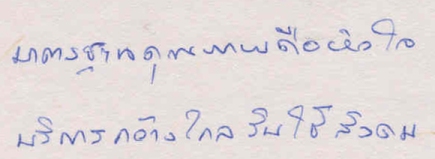 มาตรฐานคุณภาพคือหัวใจ
บริการกว้างไกล รับใช้สังคม